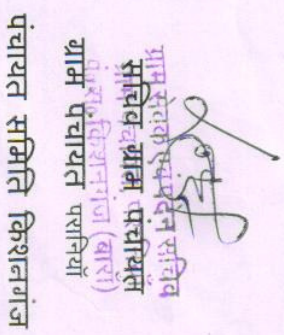 ग्राम सेवक एवं पदेन सचिव
सचिव ग्राम पंचायत
ग्राम पंचायत
पं.स. किशनगंज (बारां)
ग्राम पंचायत
पंचायत समिति किशनगंज